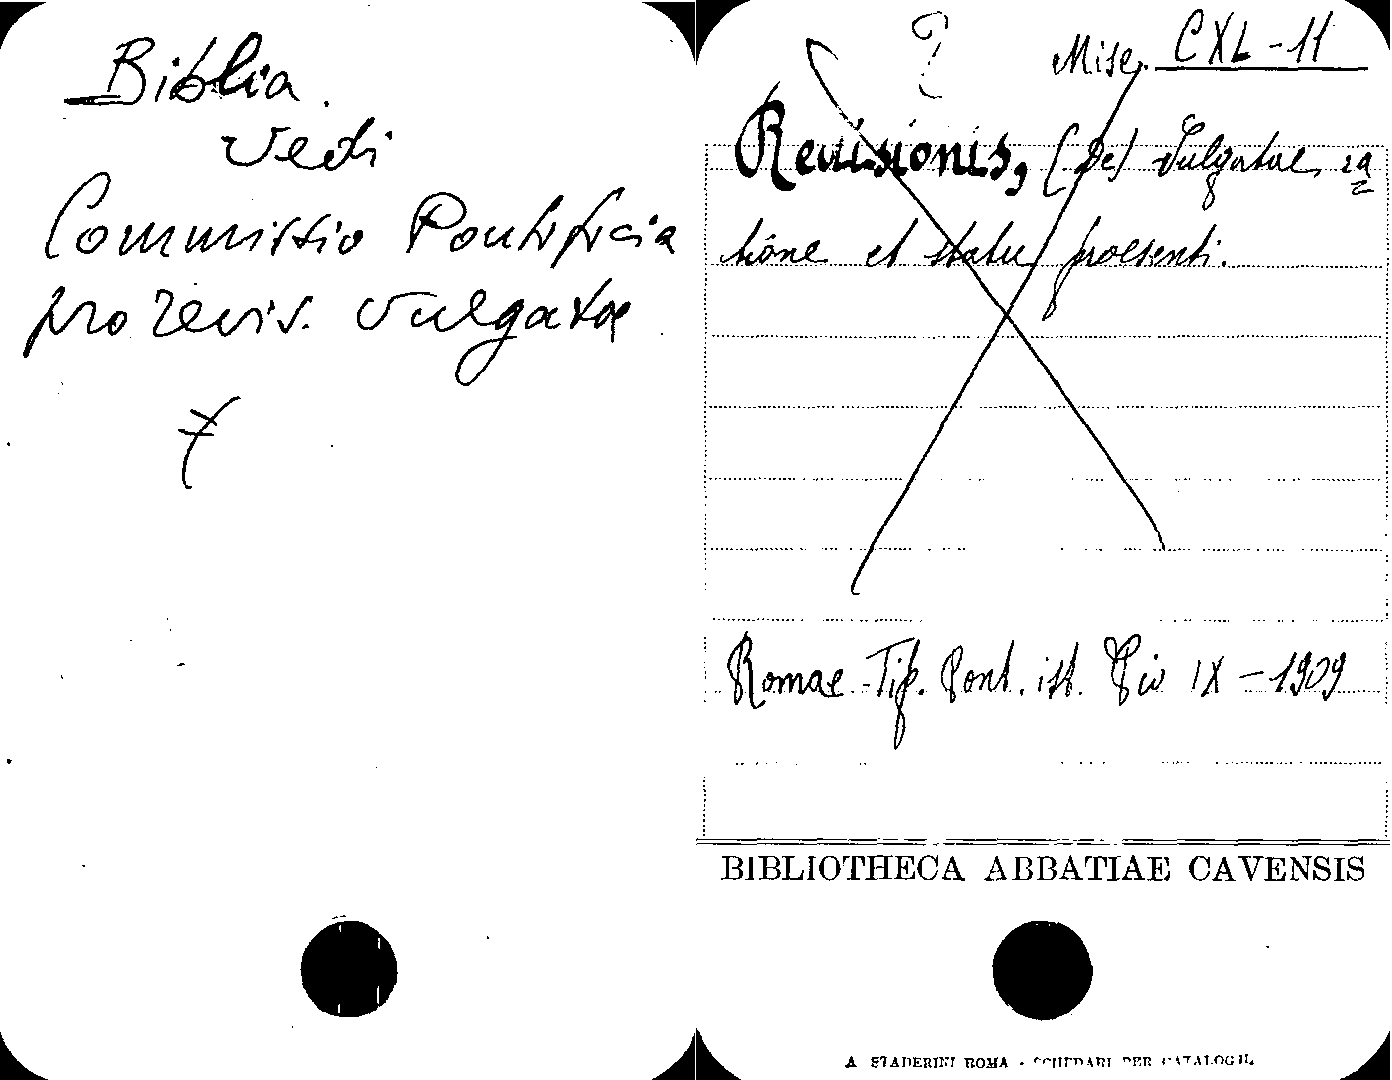 Biblia.
Vedi
Commissio Pontificia
pro revis. Vulgatae
?
Misc. CXL - 11
Revisionis, (De) Vulgatae, ra
tione et statu praesenti.
Romae - Tip. Pont. ist. Pio IX - 1909
BIBLIOTHECA ABBATIAE CAVENSIS
A. STADERINI ROMA - SCHEDARI PER CATALOGHI.